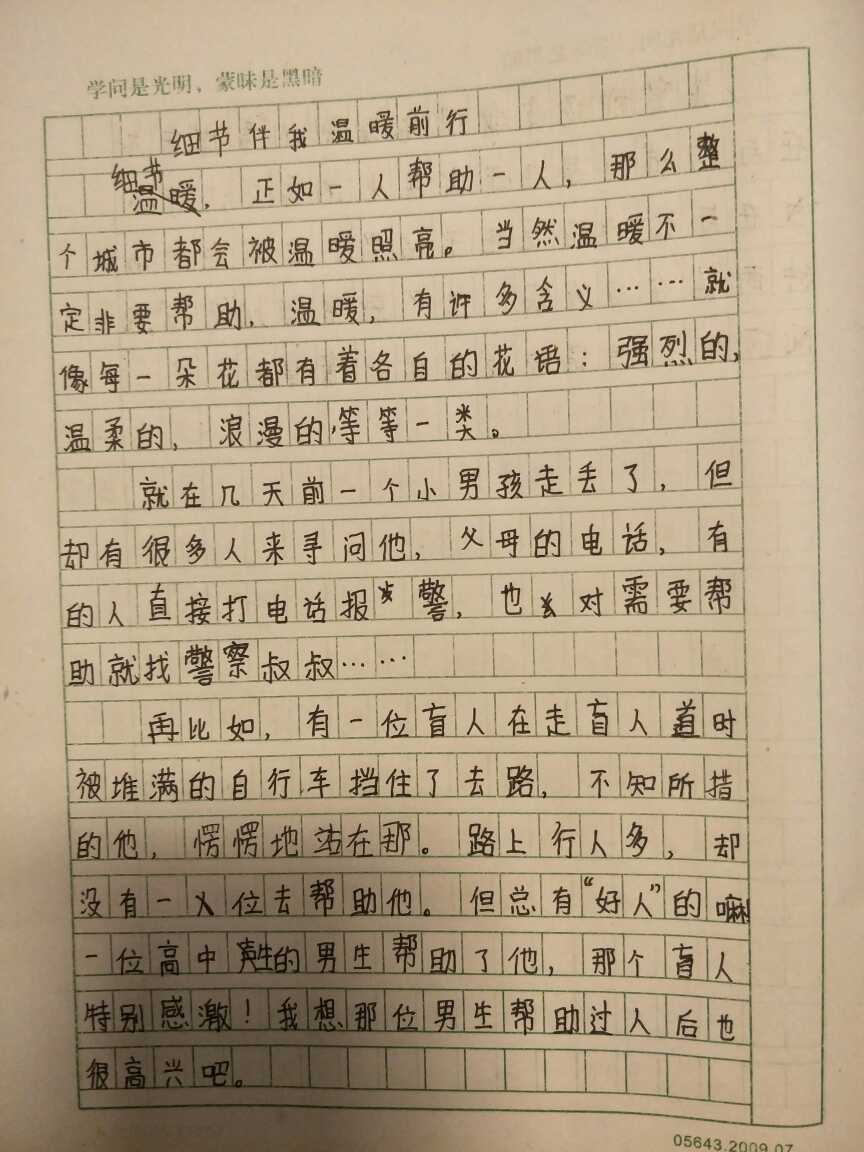 学问是光明、蒙昧是黑暗
细节伴我温暖前行
细节
温暖，正如一人帮助一人，那么整
个城市都会被温暖照亮。当然温暖不一
定非要帮助，温暖，有许多含义……就
像每一朵花都有着各自的花语：强烈的，
温柔的，浪漫的，等等一类。
就在几天前一个小男孩走丢了，但
却有很多人来寻问他，父母的电话，有
的人直接打电话报警，也对需要帮
助就找警察叔叔……
再比如，有一位盲人在走盲人道时
被堆满的自行车挡住了去路，不知所措
的他，愣愣地站在那。路上行人多，却
没有一位去帮助他。但总有“好人”的嘛
一位高中生的男生帮助了他，那个盲人
特别感激！我想那位男生帮助过人后也
很高兴吧。
05643.2009.07